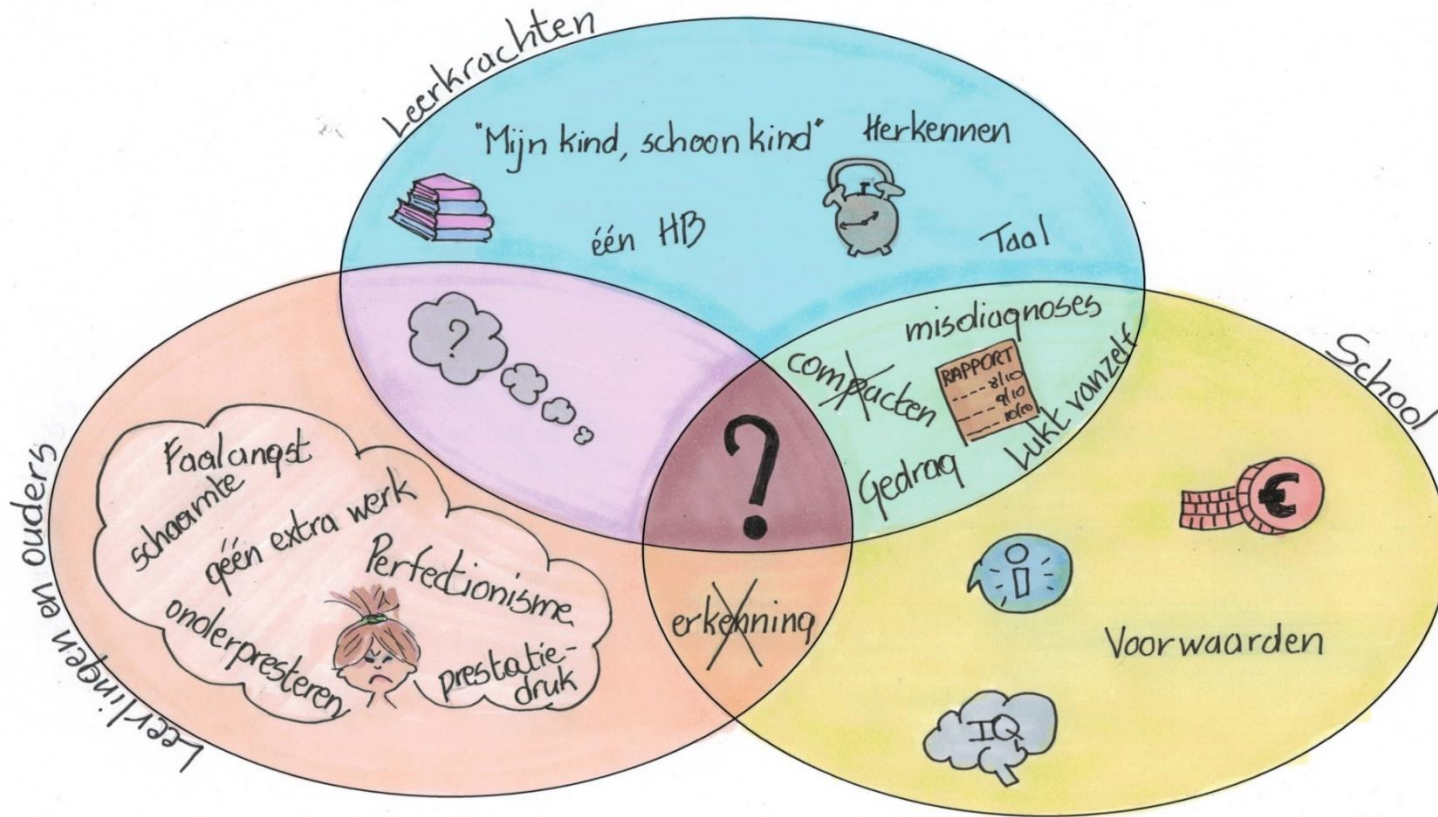 Leerkrachten
"Mijn kind, schoon kind"
Herkennen
één HB
Taal
?
misdiagnoses
compacten
RAPPORT
8/10
9/10
10/10
Lukt vanzelf
Gedrag
School
€
i
Voorwaarden
IQ
?
erkenning
Leerlingen en ouders
Faalangst
schaamte
géén extra werk
Perfectionisme
onderpresteren
prestatie-
druk